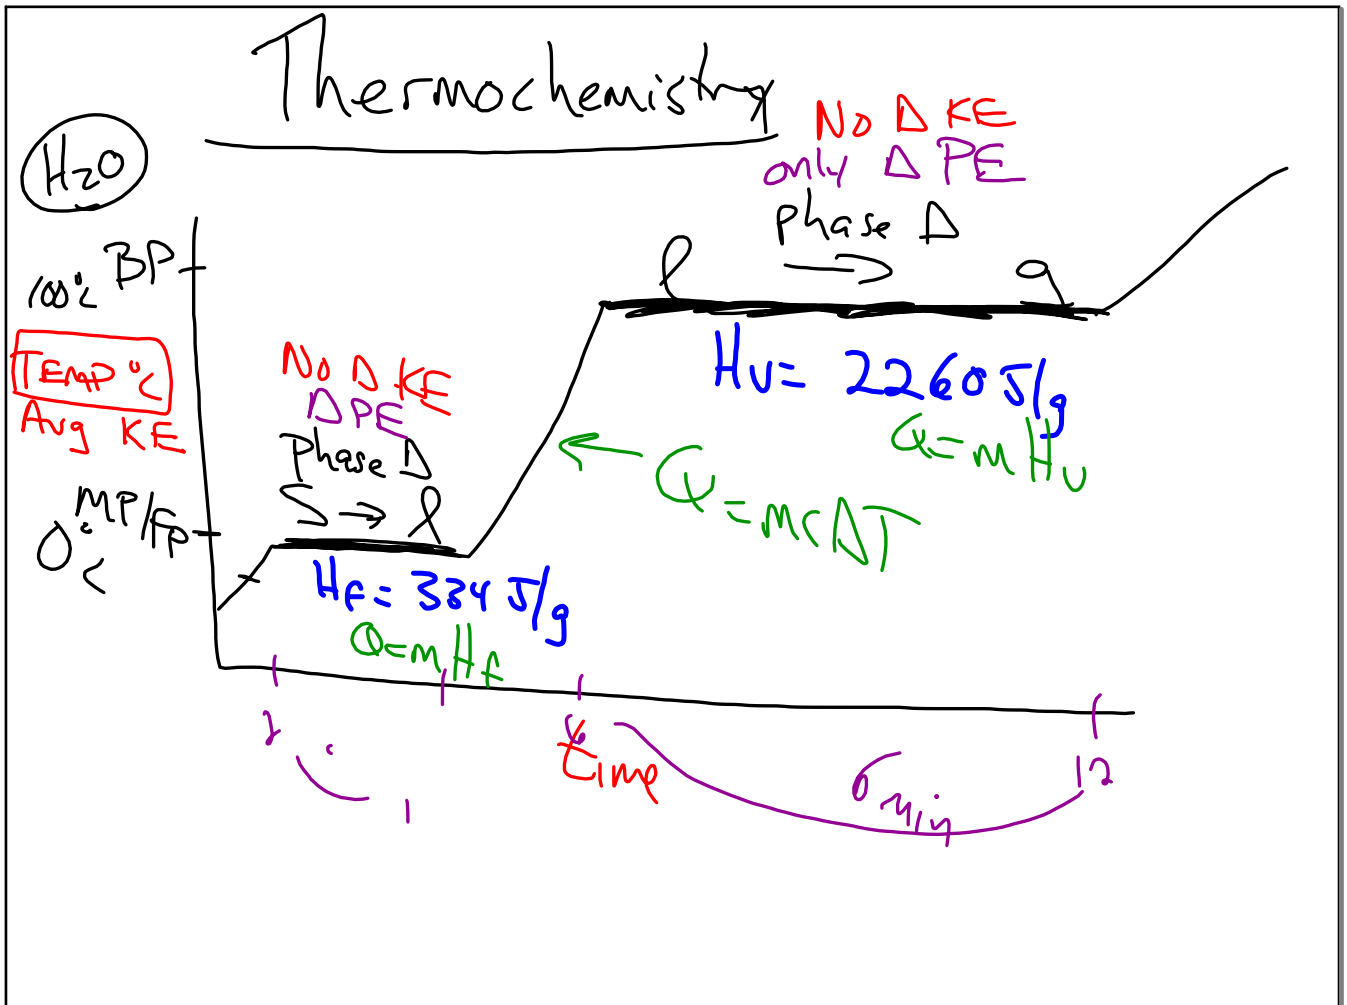 Thermochemistry
H2O
No Δ KE
only Δ PE
phase Δ
l → g
BP
100°C
TEMP °C
Avg KE
No Δ KE
Δ PE
Phase Δ
S → l
MP/FP
0°C
Hv = 2260 J/g
Q = mHv
Q = mcΔT
HF = 334 J/g
Q = mHf
2
6
12
time
6 min